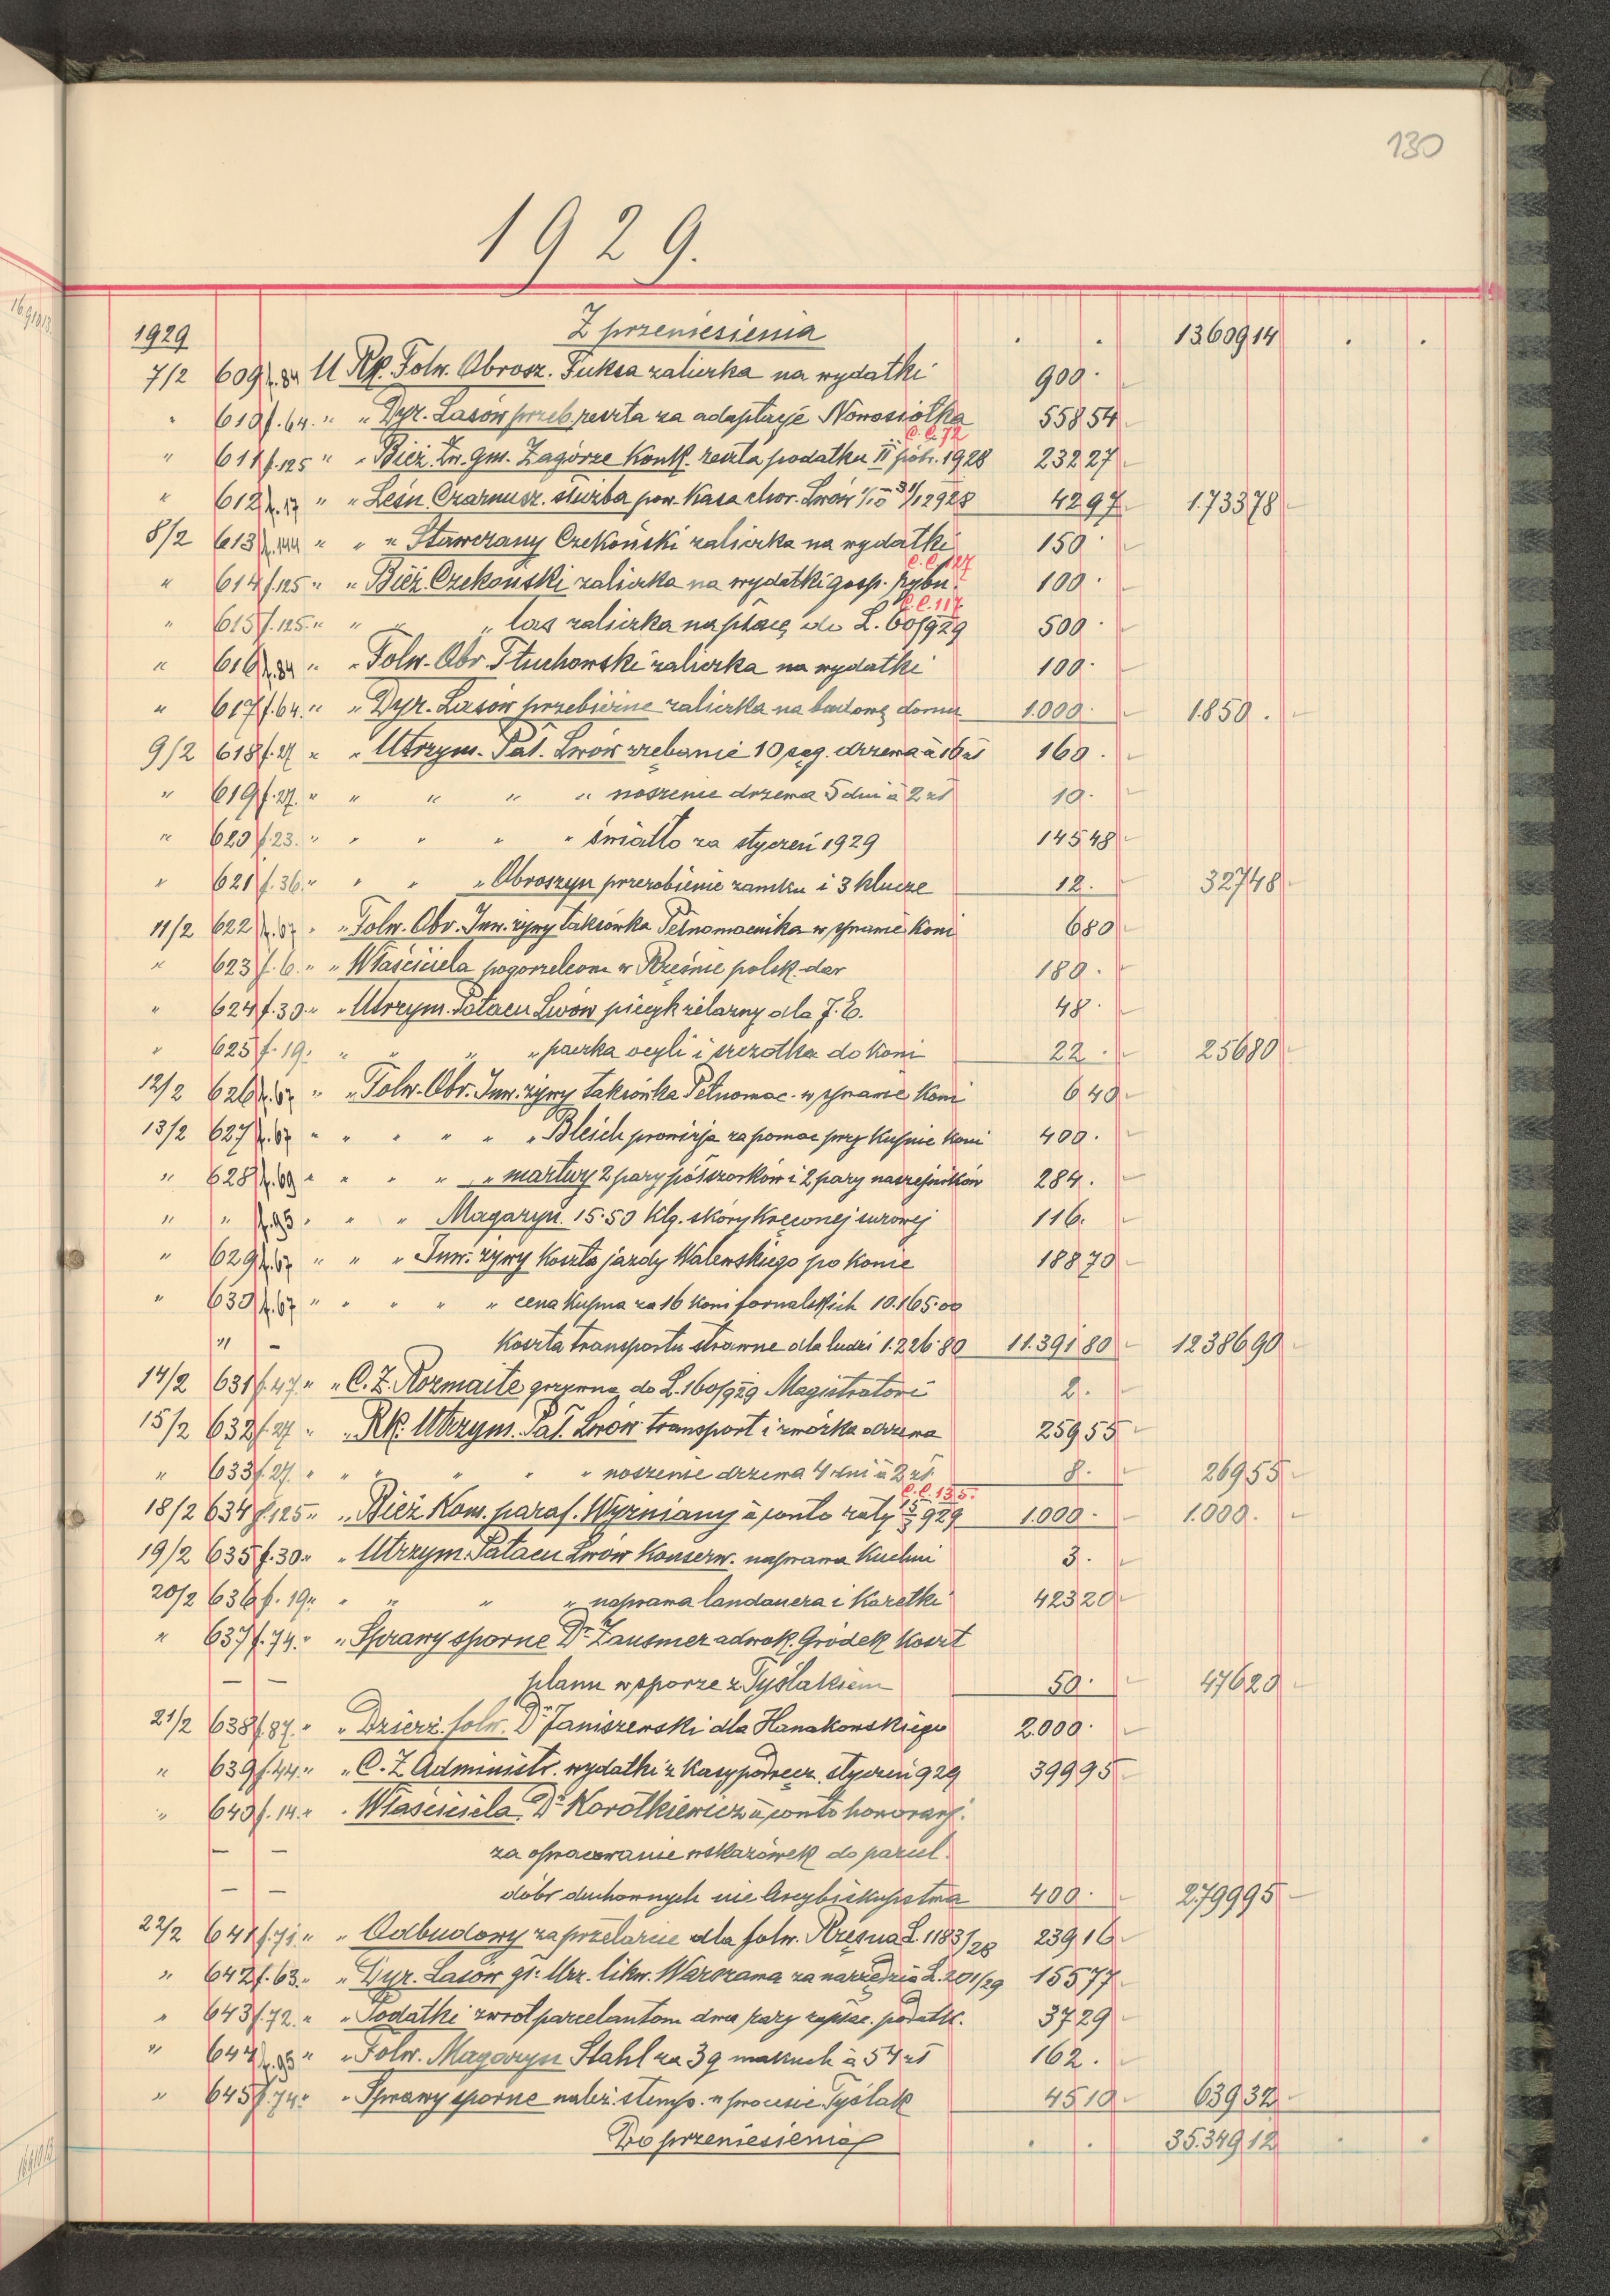 130
1929.
1929 Z przeniesienia . . 13.609 14 . .
7/2 609 f. 84 U Rk. Folw. Obrosz. Fuksa zaliczka na wydatki 900 ·
" 610 f. 64. " " Dyr. Lasów przeb. reszta za adaptacje Nowosiółka 558 54
C.C. 72
" 611 f. 125 " " Bież. Zw. gm. Zagórze Konk. reszta podatku II półr. 1928 232 27
" 612 f. 17 " " Leśn. Czarnusz. służba pow. Kasa chor. Lwów 1/10 31/12 928 42 97 1.733 78
8/2 613 f. 144 " " " Stawczany Czekoński zaliczka na wydatki 150 ·
C.C. 127
" 614 f. 125 " " Bież. Czekoński zaliczka na wydatki gosp. rybn. 100 ·
C.C. 117
" 615 f. 125 " " " " las zaliczka na płacę do L. 60/929 500 ·
" 616 f. 84 " " Folw. Obr. Tłuchowski zaliczka na wydatki 100 ·
" 617 f. 64. " " Dyr. Lasów przebieżne zaliczka na budowę domu 1.000 · 1.850 .
9/2 618 f. 27 " " Utrzym. Pał. Lwów zrębanie 10 sąg. drzewa à 16 zł 160 .
" 619 f. 27. " " " " " noszenie drzewa 5 dni à 2 zł 10 ·
" 620 f. 23. " " " " " światło za styczeń 1929 145 48
" 621 f. 36. " " " " Obroszyn przerobienie zamku i 3 klucze 12 . 327 48
11/2 622 f. 67 " " Folw. Obr. Inw. żywy taksówka Pełnomocnika w sprawie koni 6 80
" 623 f. 6. " " Właściciela pogorzelcom w Rzęśnie polsk. dar 180 .
" 624 f. 30. " " Utrzym. Pałacu Lwów piecyk żelazny dla J. E. 48 .
" 625 f. 19. " " " " paczka ocyli i szczotka do koni 22 . 256 80
12/2 626 f. 67 " " Folw. Obr. Inw. żywy taksówka Pełnomoc. w sprawie koni 6 40
13/2 627 f. 67 " " " " " " Bleich prowizja za pomoc przy kupnie koni 400 .
" 628 f. 69 " " " " " martwy 2 pary półszorków i 2 pary naszejników 284 .
" " f. 95 " " " Magazyn. 15·50 klg. skóry kręconej surowej 116 .
" 629 f. 67 " " " Inw. żywy koszta jazdy Walewskiego po konie 188 70
" 630 f. 67 " " " " " cena kupna za 16 koni fornalskich 10.165·00
" — koszta transportu strawne dla ludzi 1.226·80 11.391 80 12.386 90
14/2 631 f. 47. " " C. Z. Rozmaite grzywna do L. 160/929 Magistratowi 2 .
15/2 632 f. 27 " " Rk. Utrzym. Pał. Lwów transport i zwózka drzewa 259 55
" 633 f. 27. " " " " " " noszenie drzewa 4 dni à 2 zł 8 . 269 55
C.C. 135.
18/2 634 f. 125 " " Bież Kom. paraf. Wyżniany à conto raty 15/3 929 1.000 · 1.000 .
19/2 635 f. 30. " " Utrzym. Pałacu Lwów Konserw. naprawa kuchni 3 .
20/2 636 f. 19. " " " " " naprawa landauera i karetki 423 20
" 637 f. 74. " " Sprawy sporne Dr. Zausmer adwok. Gródek koszt
— — planu w sporze z Tyślakiem 50 · 476 20
21/2 638 f. 87. " " Dzierż. folw. Dr. Janiszewski dla Hanakowskiego 2.000 ·
" 639 f. 44. " " C. Z. Administr. wydatki z Kasy podręcz. styczeń 929 399 95
" 640 f. 14. " " Właściciela Dr. Korotkiewicz à conto honorarj.
— — za opracowanie wskazówek do parcel.
— — dóbr duchownych nie Arcybiskupstwa 400 · 2.799 95
22/2 641 f. 71. " " Odbudowy za przetarcie dla folw. Rzęsna L. 1183/28 239 16
" 642 f. 63. " " Dyr. Lasów gł: Urz. likw. Warszawa za narzędzia L. 201/29 155 77
" 643 f. 72. " " Podatki zwrot parcelantom dwa razy zapłac. podatk. 37 29
" 644 f. 95 " " Folw. Magazyn Stahl za 3 q makuch à 54 zł 162 .
" 645 f. 74. " " Sprawy sporne należ. stemp. w procesie Tyślak 45 10 639 32
Do przeniesienia . . 35.349 12 . .